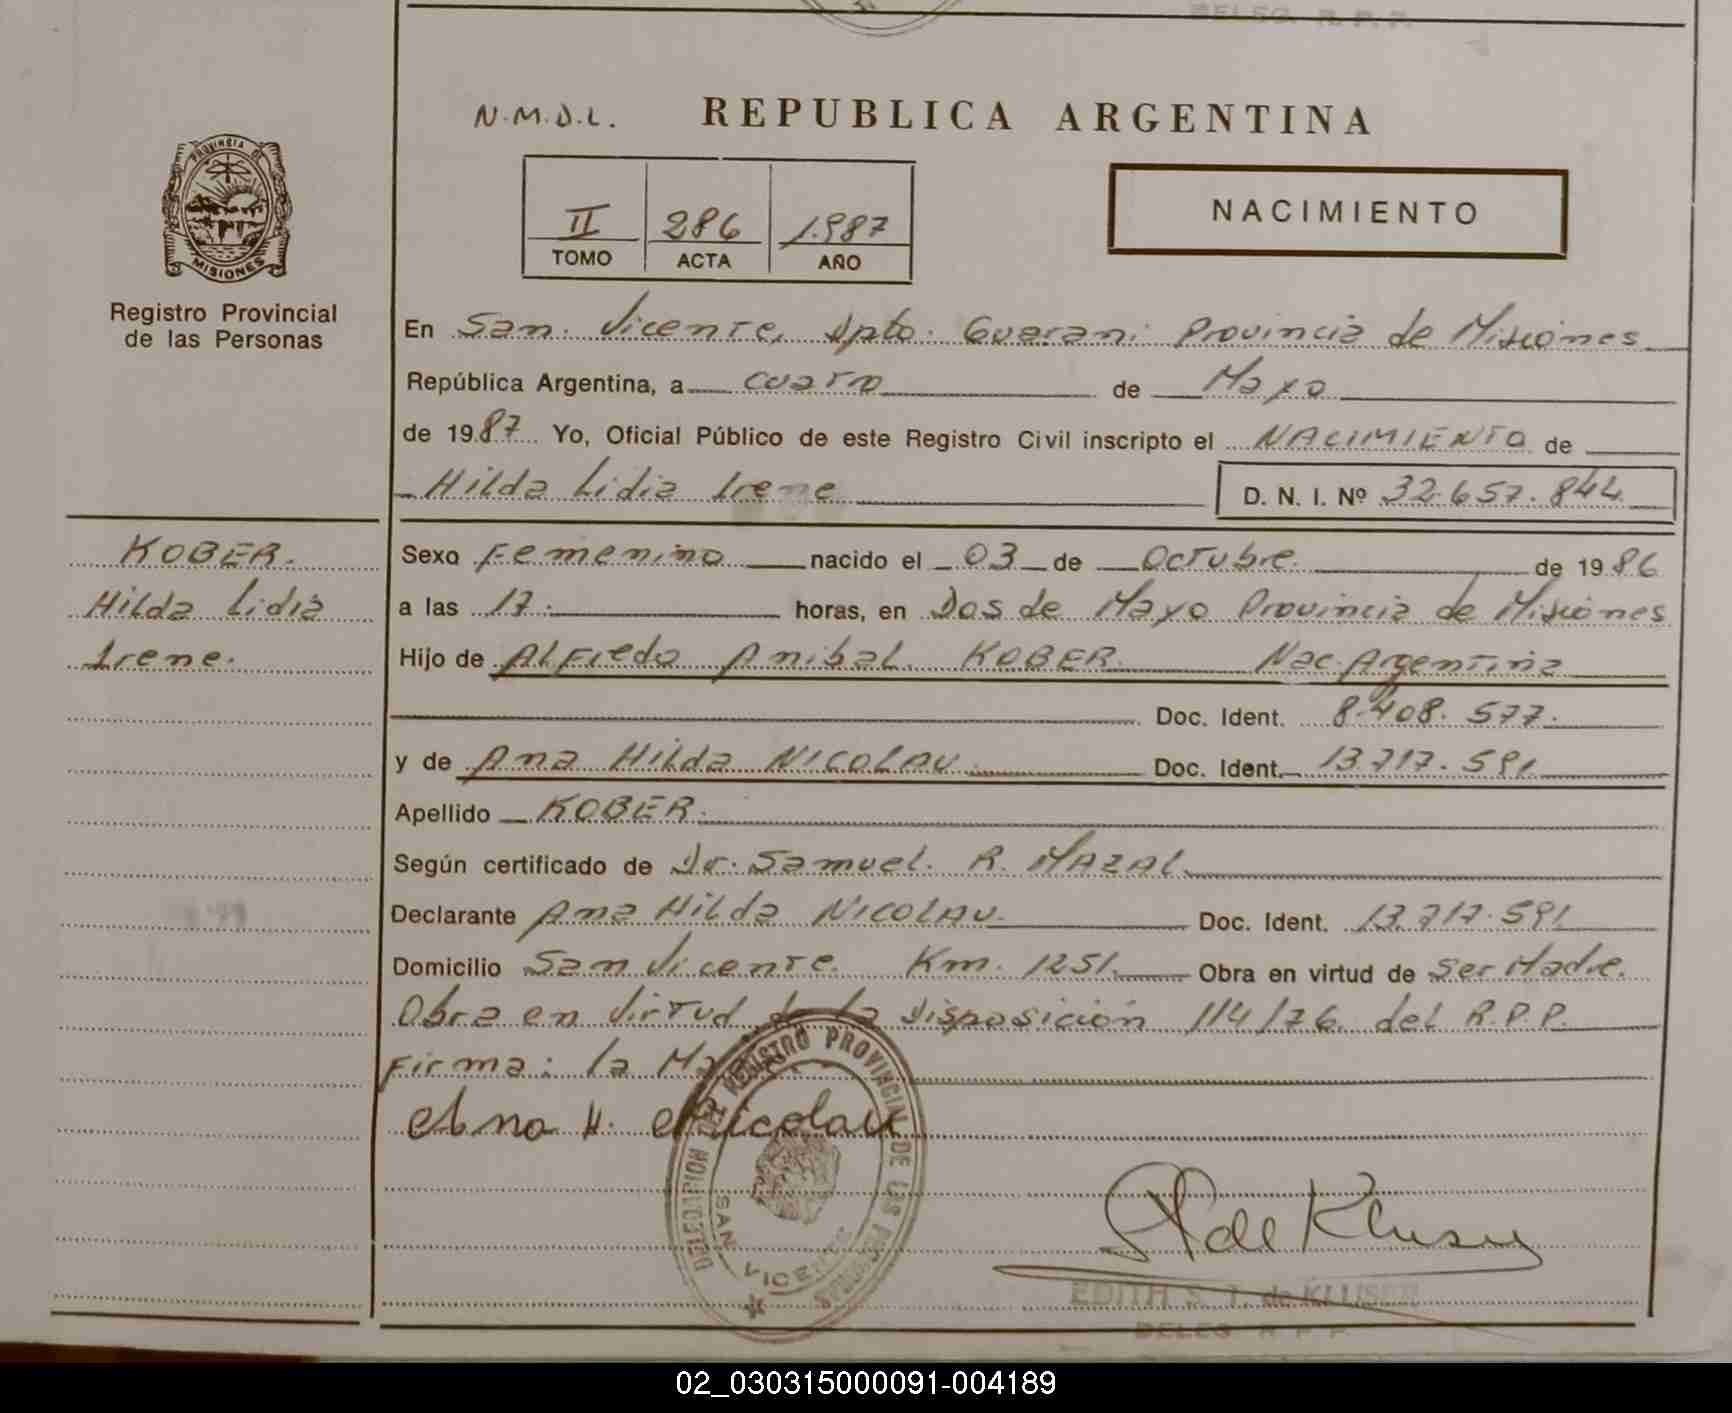 DELEG. R. P. P.
N.M.D.L. REPUBLICA ARGENTINA
PROVINCIA DE
MISIONES
Registro Provincial
de las Personas
II 286 1.987
TOMO ACTA AÑO
NACIMIENTO
En San Vicente, Dpto. Guarani Provincia de Misiones
República Argentina, a cuatro de Mayo
de 1987 Yo, Oficial Público de este Registro Civil inscripto el NACIMIENTO de
Hilda Lidia Irene D. N. I. Nº 32.657.844
KOBER.
Hilda Lidia
Irene.
Sexo Femenino nacido el 03 de Octubre de 1986
a las 17. horas, en Dos de Mayo Provincia de Misiones
Hijo de Alfredo Anibal KOBER Nac. Argentina
Doc. Ident. 8.408.577.
y de Ana Hilda NICOLAU Doc. Ident. 13.717.591
Apellido KOBER.
Según certificado de Dr. Samuel R. MAZAL
Declarante Ana Hilda NICOLAU Doc. Ident. 13.717.591
Domicilio San Vicente Km. 1251 Obra en virtud de ser Madre.
Obra en virtud de la Disposición 114/76 del R.P.P.
Firma: la Ma
Ana H. Nicolau
DELEGACION DEL REGISTRO PROVINCIAL DE LAS PERSONAS
SAN VICENTE
de Kluser
EDITH S. J. de KLUSER
DELEG R. P. P.
02_030315000091-004189